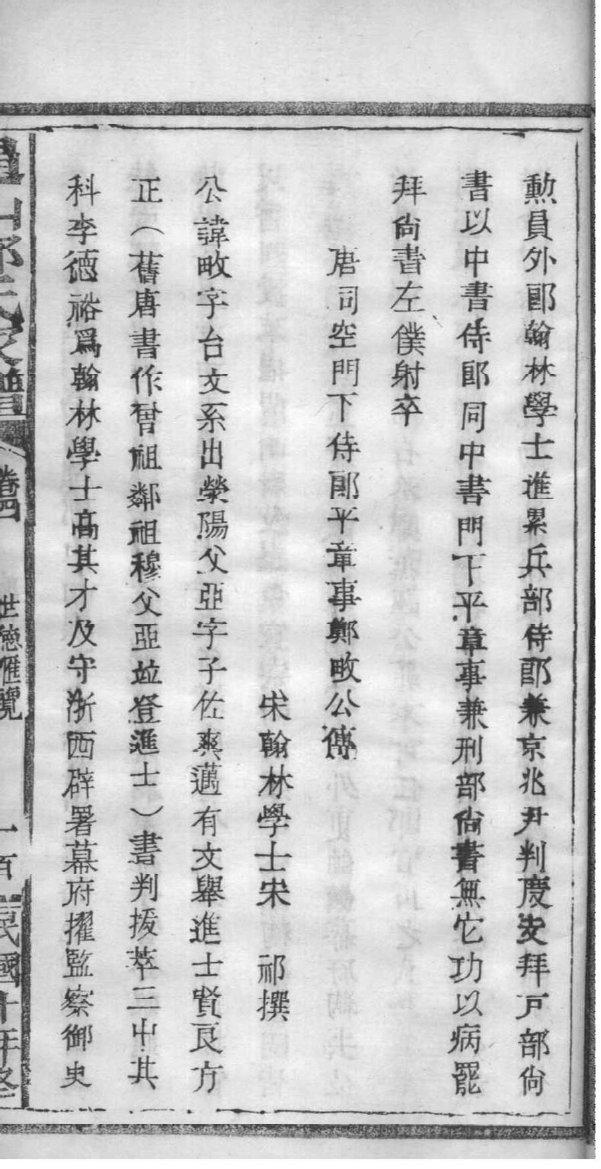 勲員外郎翰林學士進累兵部侍郎兼京兆尹判度支拜戸部尙
書以中書侍郎同中書門下平章事兼刑部尙書無它功以病罷
拜尙書左僕射卒
唐司空門下侍郎平章事鄭畋公傳
宋翰林學士宋　祁撰
公諱畋字台文系出滎陽父亞字子佐爽邁有文舉進士賢良方
正（舊唐書作曾祖鄰祖穆父亞並登進士）書判拔萃三中其
科李德裕爲翰林學士高其才及守浙西辟署幕府擢監察御史
卷四
世德匯覽
一百
民國十年修